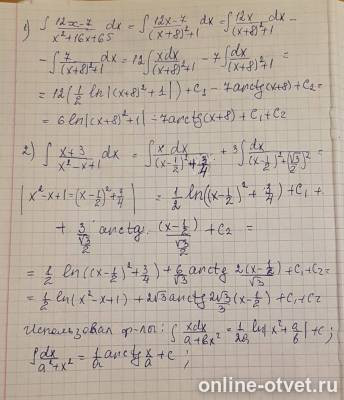 1) ∫ 12x-7 / x²+16x+65 dx = ∫ 12x-7 / (x+8)²+1 dx = ∫ 12x / (x+8)²+1 dx -
- ∫ 7 / (x+8)²+1 dx = 12 ∫ xdx / (x+8)²+1 - 7 ∫ dx / (x+8)²+1 =
= 12 (1/2 ln|(x+8)²+1|) + C₁ - 7arctg(x+8) + C₂ =
= 6 ln|(x+8)²+1| - 7arctg(x+8) + C₁ + C₂
2) ∫ x+3 / x²-x+1 dx = ∫ x dx / (x-1/2)²+3/4 + 3 ∫ dx / (x-1/2)²+(√3/2)² =
| x²-x+1 = (x-1/2)²+3/4 | = 1/2 ln((x-1/2)²+3/4) + C₁ +
+ 3 / √3/2 arctg (x-1/2) / √3/2 + C₂ =
= 1/2 ln((x-1/2)²+3/4) + 6/√3 arctg 2(x-1/2)/√3 + C₁ + C₂ =
= 1/2 ln(x²-x+1) + 2√3 arctg 2√3/3 (x-1/2) + C₁ + C₂
Использовал ф-лы: ∫ xdx / a+bx² = 1/2a ln|x²+a/b| + C;
∫ dx / a²+x² = 1/a arctg x/a + C;
online-otvet.ru